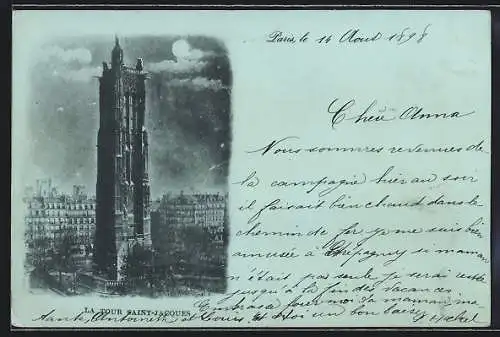 Paris, le 14 Aout 1898
Chère Anna
Nous sommes revenues de
la campagne hier au soir
il faisait bien chaud dans le
chemin de fer je me suis bien
amusée à Crepagny si maman
n'était pas seule je serai resté
jusqu'à la fin des vacances.
LA TOUR SAINT-JACQUES
Embrasse pour moi ta maman ma
tante Antoinette et Louis et toi un bon baiser